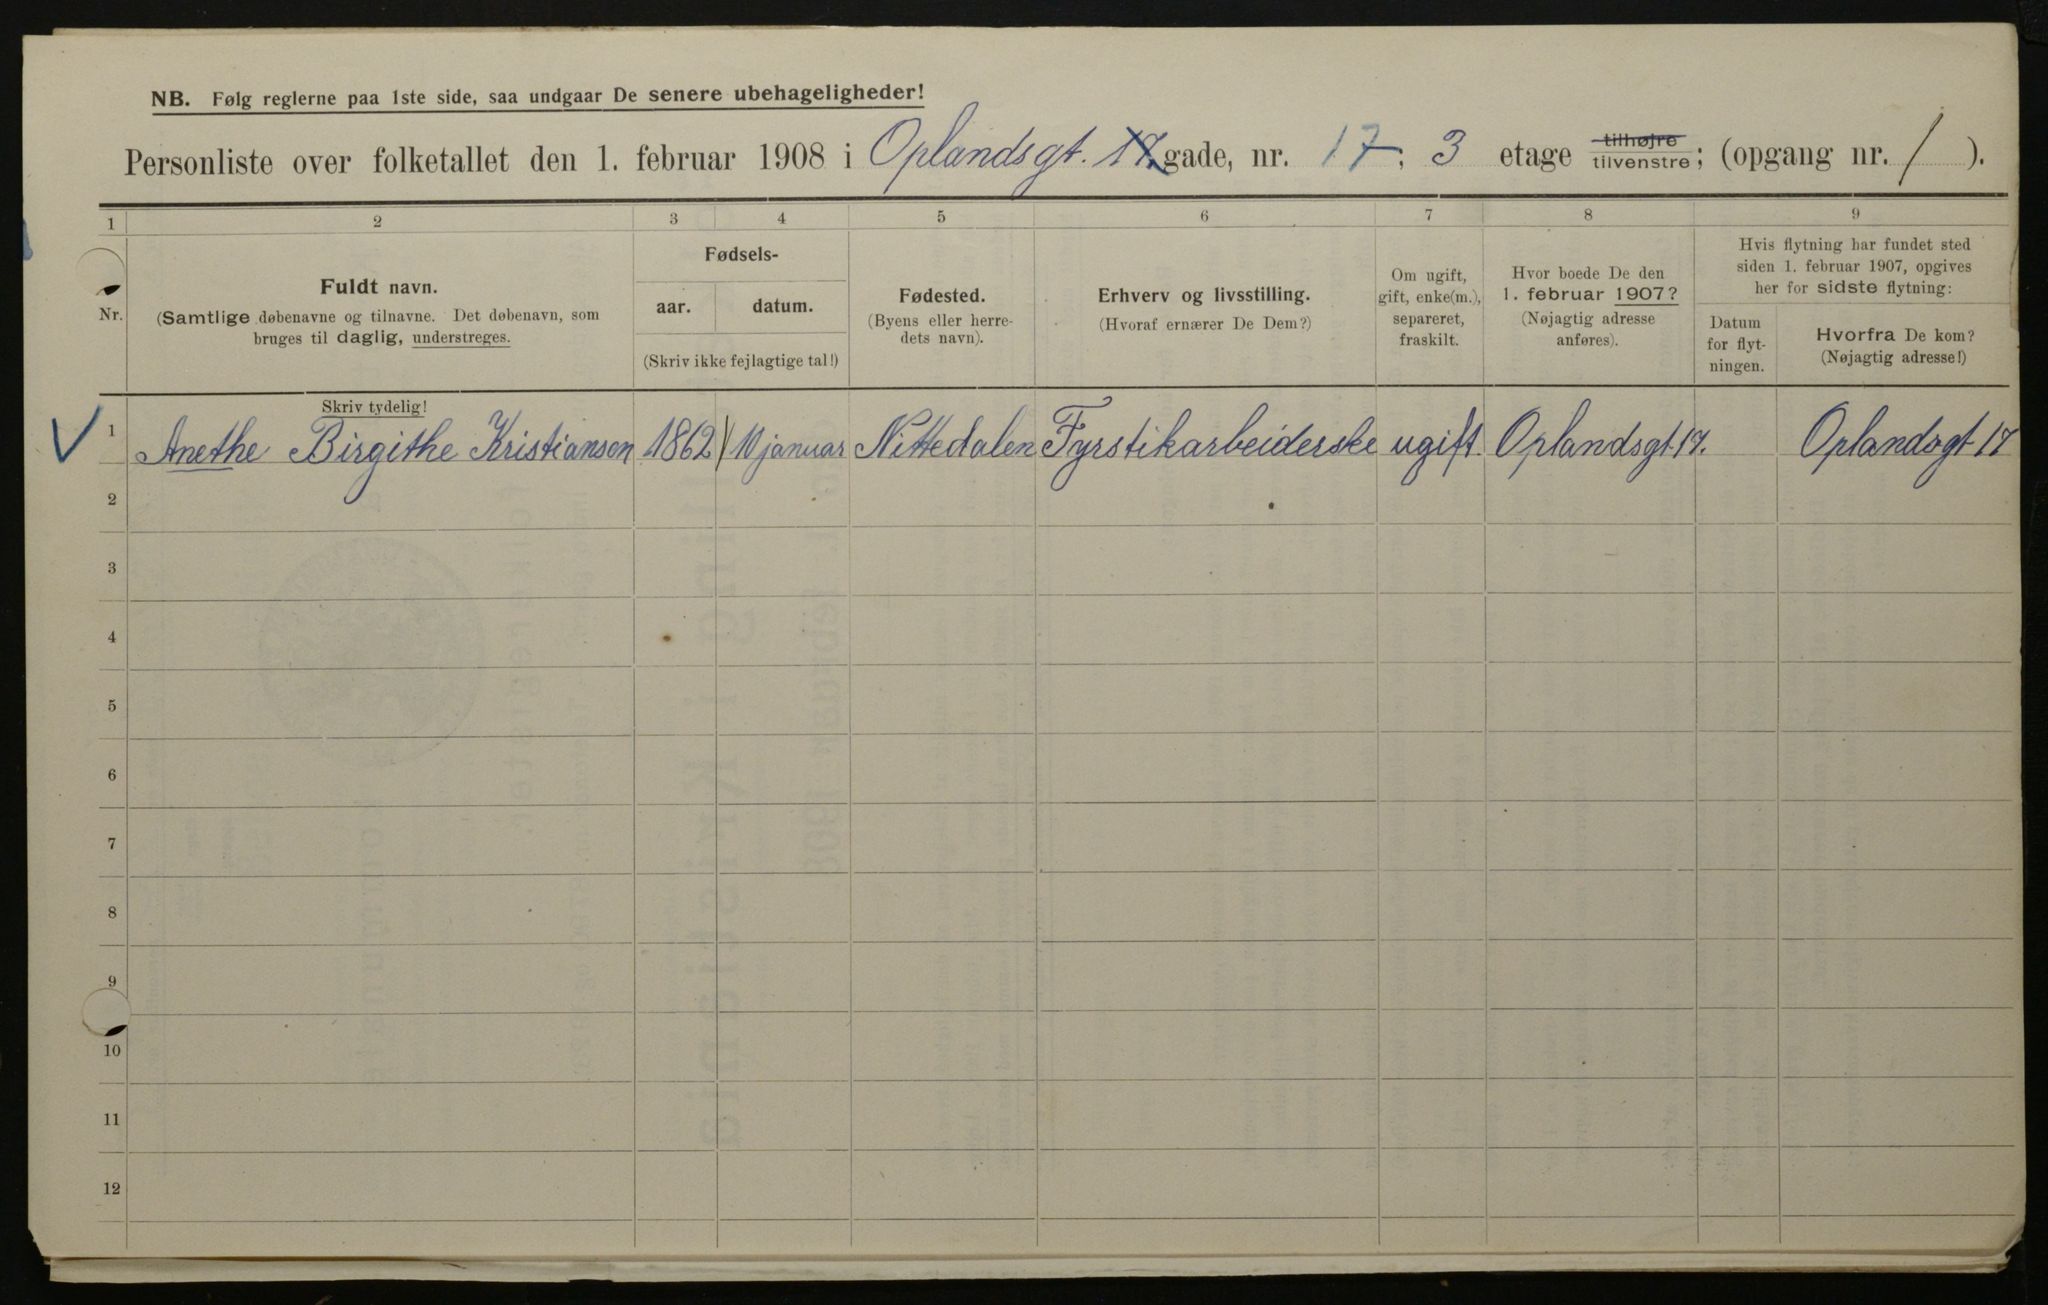 NB. Følg reglerne paa 1ste side, saa undgaar De senere ubehageligheder!
Personliste over folketallet den 1. februar 1908 i Oplandsgt. 17. gade, nr. 17; 3 etage tilhøjre tilvenstre; (opgang nr. 1 ).
1 2 3 4 5 6 7 8 9
Nr.
Fuldt navn.
(Samtlige døbenavne og tilnavne. Det døbenavn, som
bruges til daglig, understreges.
Fødsels-
aar. datum.
(Skriv ikke fejlagtige tal!)
Fødested.
(Byens eller herre-
dets navn).
Erhverv og livsstilling.
(Hvoraf ernærer De Dem?)
Om ugift,
gift, enke(m.),
separeret,
fraskilt.
Hvor boede De den
1. februar 1907?
(Nøjagtig adresse
anføres).
Hvis flytning har fundet sted
siden 1. februar 1907, opgives
her for sidste flytning:
Datum
for flyt-
ningen.
Hvorfra De kom?
(Nøjagtig adresse!)
Skriv tydelig!
1 Anethe Birgithe Kristiansen 1862 10 januar Nittedalen Fyrstikarbeiderske ugift. Oplandsgt. 17. Oplandsgt 17
2
3
4
5
6
7
8
9
10
11
12